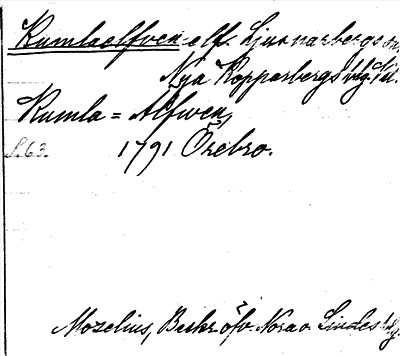 Kumlaelfven elf. Ljusnarbergs sn,
Nya Kopparbergs
Kumla = Älfwen,
S. 63. 1791 Örebro.
Mozelius, Beskr. öfv. Nora o. Lindes